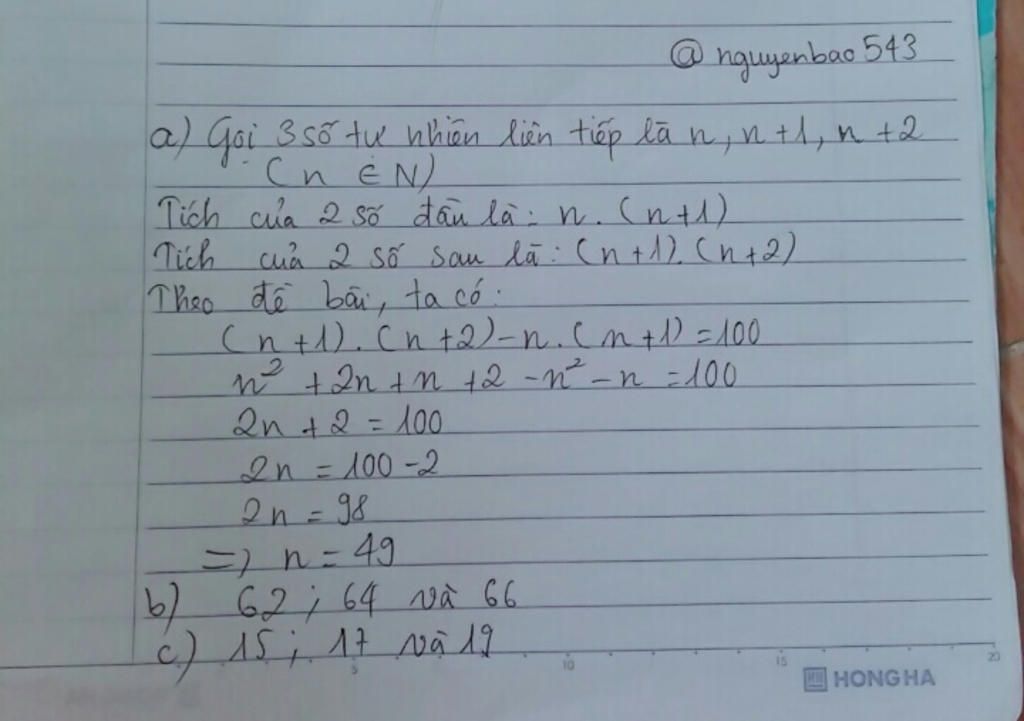 @ nguyenbao 543
a) Gọi 3 số tự nhiên liên tiếp là n, n+1, n +2
(n ∈ N)
Tích của 2 số đầu là: n. (n+1)
Tích của 2 số sau là: (n+1). (n+2)
Theo đề bài, ta có:
(n+1). (n+2) – n. (n+1) = 100
n² + 2n + n + 2 – n² – n = 100
2n + 2 = 100
2n = 100 – 2
2n = 98
=> n = 49
b) 62 ; 64 và 66
c) 15 ; 17 và 19
5 10 15 20
HONG HA